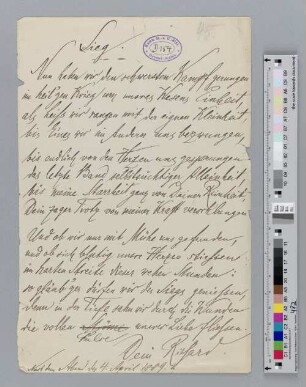 Sieg.
Nun haben wir den schwersten Kampf gerungen
im heil'gen Krieg um unsres Wesens Einheit,
als heiß wir rangen mit der eignen Kleinheit
bis Eines wir im Andern uns bezwungen,
bis endlich von den Herzen uns gesprungen
das letzte Band selbstsüchtiger Kleinheit,
bis meine Starrheit ganz von Deiner Reinheit,
Dein zager Trotz von meiner Kraft verschlungen.
Und ob wir nur mit Mühe uns gefunden,
und ob sich blutig unsre Herzen stießen
im harten Streite
so glaub', dürfen wir des Sieg's genießen,
denn in der Tiefe sehn wir durch die Wunden
die vollen unsrer Liebe fließen.
Dein Richard
d. 4. April 1889.